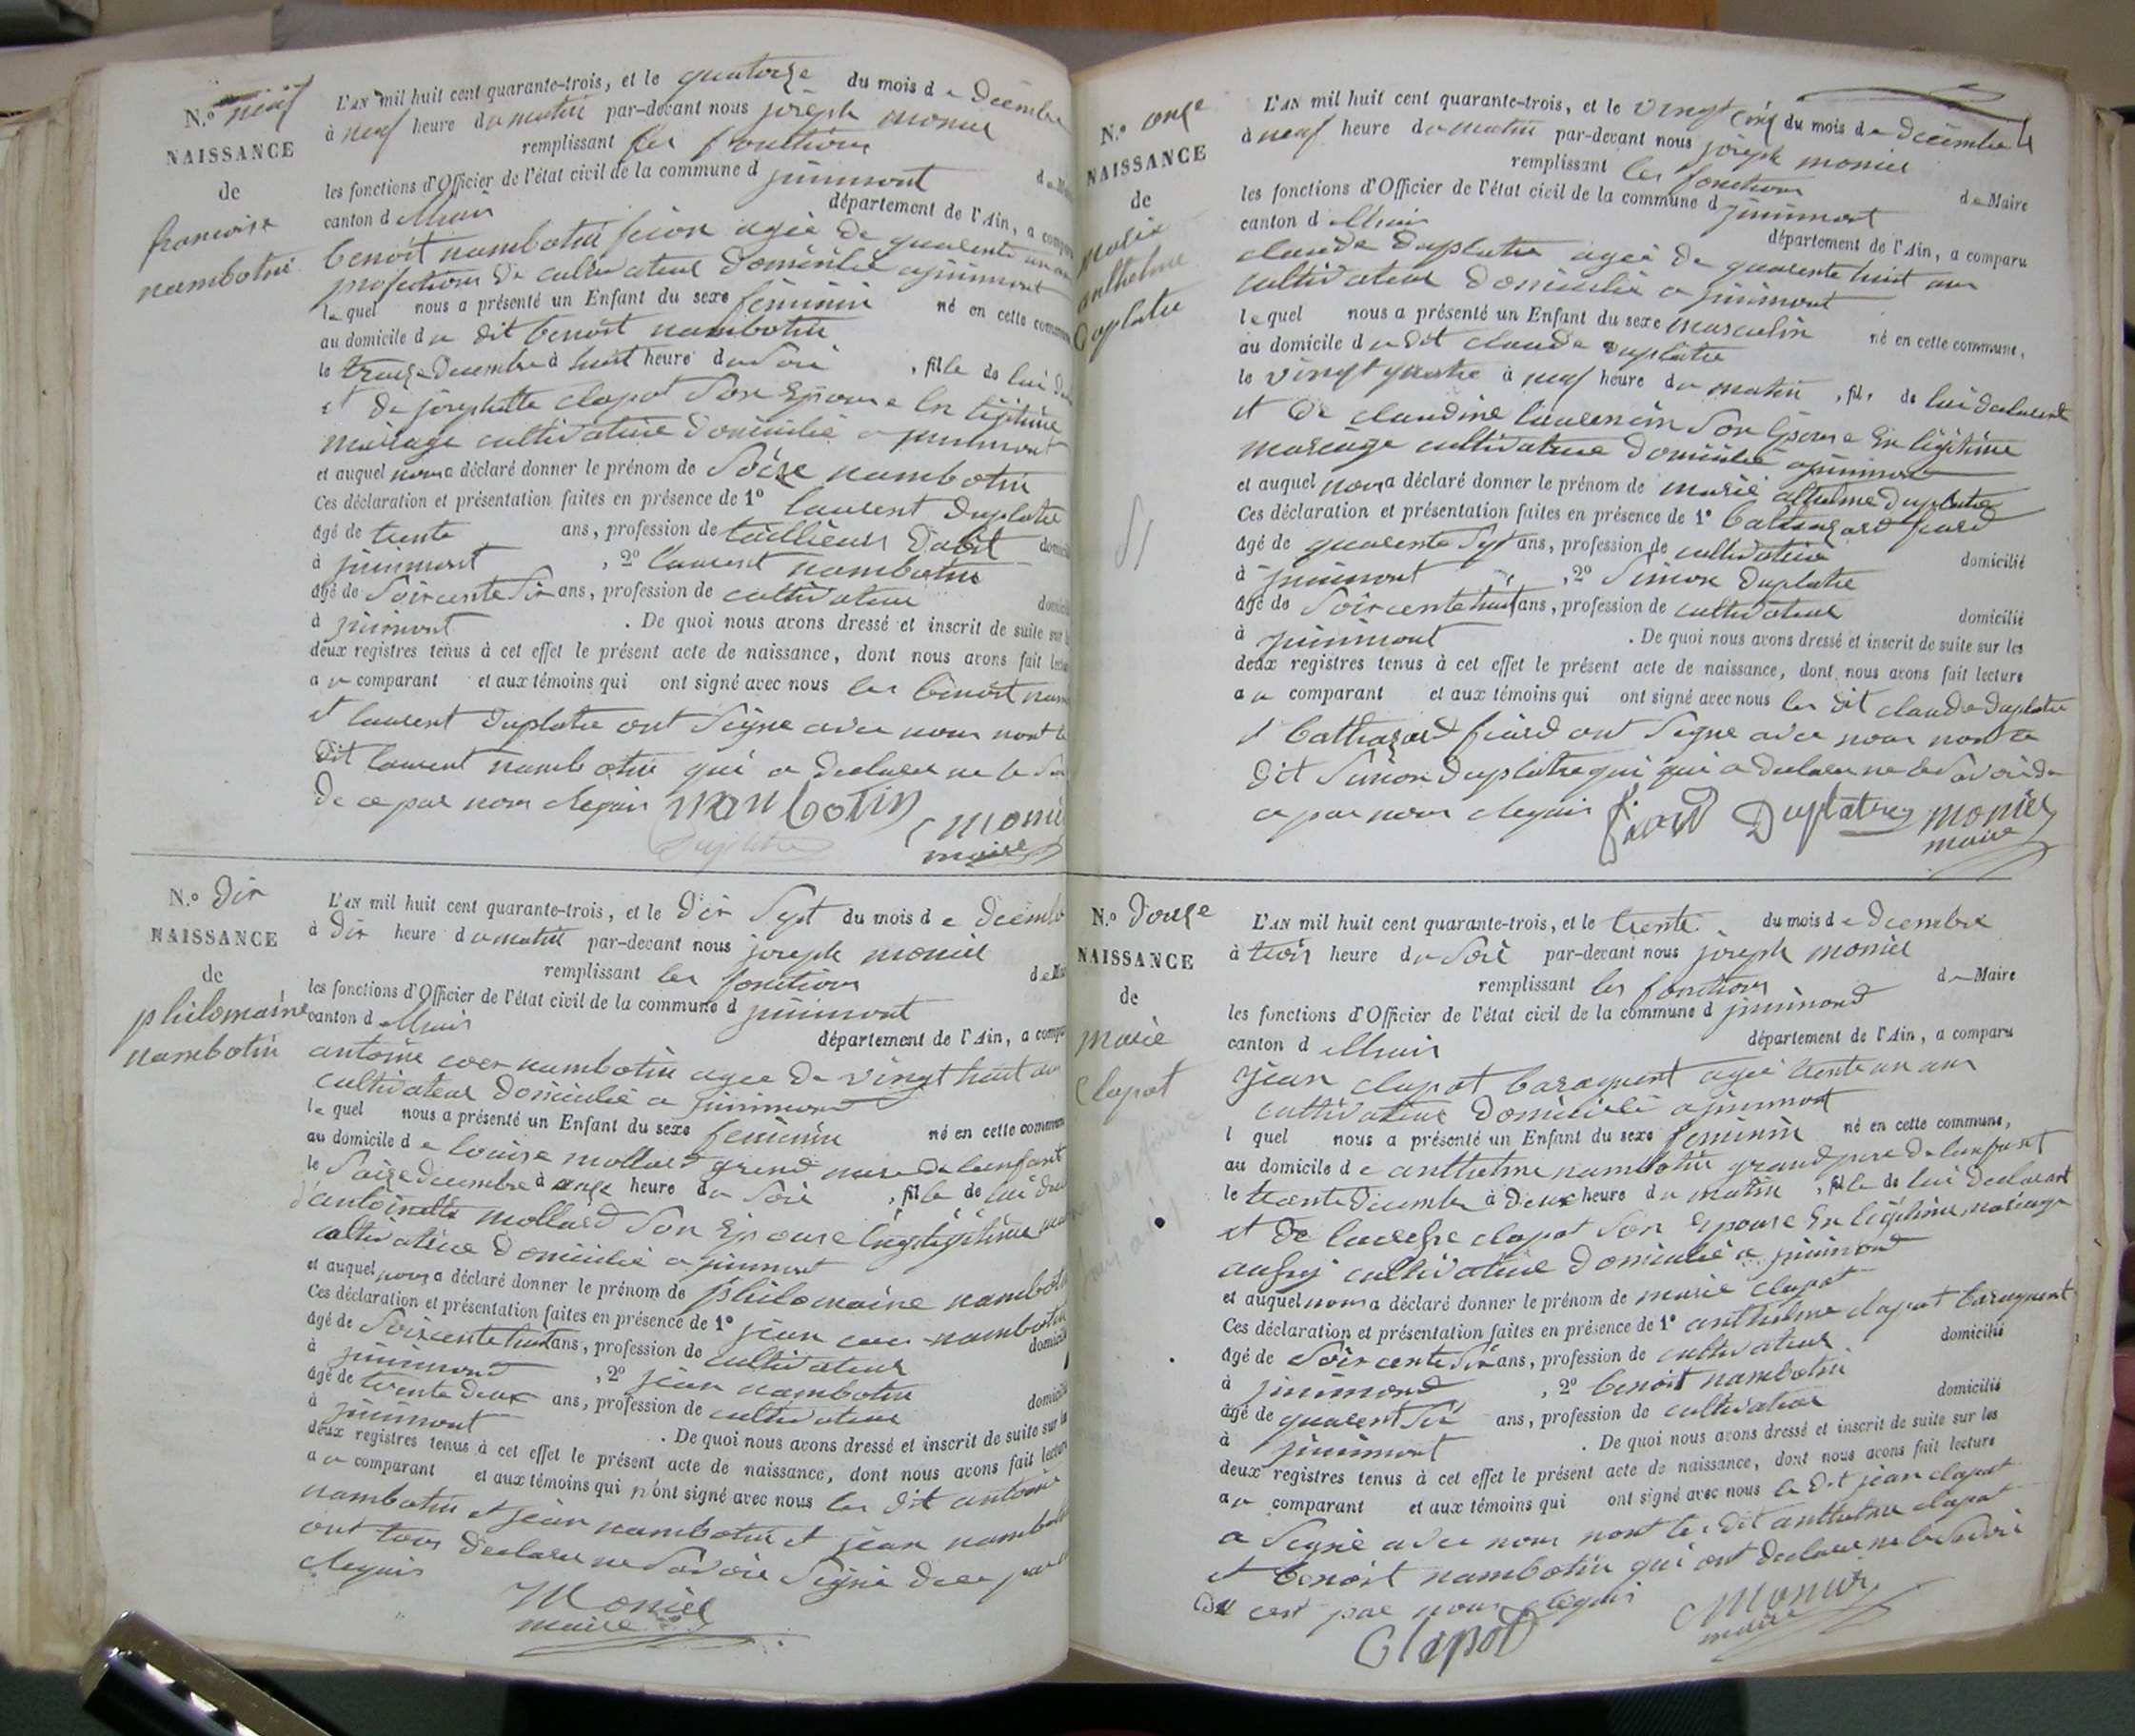 N.o neuf
NAISSANCE
de
francoise
nambotin
L'AN mil huit cent quarante-trois, et le quatorze du mois de Décembre
à neuf heure du matin par-devant nous joseph monier
remplissant les fonctions
les fonctions d'Officier de l'état civil de la commune d
canton d département de l'Ain, a
benoit nambotin agée de quarente un
profession de cultivateur domicilié
le quel nous a présenté un Enfant du sexe féminin né en cette
au domicile du dit benoit nambotin
le treize decembre à huit heure du Soir, fille de lui
et de josephette clapot Son Epouse En légitime
mariage cultivatrice domicilié a
et auquel nous a déclaré donner le prénom de nambotin
Ces déclaration et présentation faites en présence de 1° laurent Duplatre
âgé de trente ans, profession de taillieur Dabit
à , 2° laurent nambotin
âgé de Soixente Six ans, profession de cultivateur
à . De quoi nous avons dressé et inscrit de suite sur
deux registres tenus à cet effet le présent acte de naissance, dont nous avons fait
au comparant et aux témoins qui ont signé avec nous les benoit
et laurent Duplatre ont Signe avec nous nont le
Dit laurent nambotin qui a declarer ne le
De ce par nous Requis nambotin
monier
maire
N.o Dix
NAISSANCE
de
philomaine
nambotin
L'AN mil huit cent quarante-trois, et le Dix Sept du mois de
à Dix heure du matin par-devant nous joseph monier
remplissant les fonctions
les fonctions d'Officier de l'état civil de la commune d
canton d
département de l'Ain, a
antoine nambotin agee de vingt huit
cultivateur domicilié a
le quel nous a présenté un Enfant du sexe feminin né en cette
au domicile de louise mollard grend mere de lenfant
le Saize decembre à onze heure du Soir, fille de lui
d'antoinette mollard Son Epouse
cultivatrice domicilié a
et auquel nous a déclaré donner le prénom de philomaine
Ces déclaration et présentation faites en présence de 1° jean
âgé de Soixcente huit ans, profession de cultivateur
à , 2° jean nambotin
âgé de trente deux ans, profession de cultivateur
à . De quoi nous avons dressé et inscrit de suite sur
deux registres tenus à cet effet le présent acte de naissance, dont nous avons fait
au comparant et aux témoins qui n'ont signé avec nous les dit antoine
nambotin et jean nambotin et jean
ont tous declarer ne Savoir Signé
Requis
Monier
maire
N.o onze
NAISSANCE
de
marie
anthelme
Duplatre
L'AN mil huit cent quarante-trois, et le vingt Cinq du mois de decembre
à neuf heure du matin par-devant nous joseph monier
remplissant les fonctions
les fonctions d'Officier de l'état civil de la commune d de Maire
canton d
département de l'Ain, a comparu
claude Duplatre agée de quarente huit ans
cultivateur Domicilié a
le quel nous a présenté un Enfant du sexe masculin né en cette commune,
au domicile du dit claude Duplatre
le vingt quatre à neuf heure du matin, fils de lui declarent
et De claudine Son Epouse En légitime
mareage cultivatrice Domicilié
et auquel nous a déclaré donner le prénom de marie Duplatre
Ces déclaration et présentation faites en présence de 1° fiard
âgé de quarente Sept ans, profession de cultivateur domicilié
à , 2° Simon Duplatre
âgé de Soixcente huit ans, profession de cultivateur domicilié
à . De quoi nous avons dressé et inscrit de suite sur les
deux registres tenus à cet effet le présent acte de naissance, dont nous avons fait lecture
au comparant et aux témoins qui ont signé avec nous les dit claude Duplatre
et fiard ont Signe avec nous non le
dit Simon Duplatre qui qui a declarer ne le Savoir de
ce par nous Requis fiard Duplatre monier
maire
N.o Douze
NAISSANCE
de
marie
Clapot
L'AN mil huit cent quarante-trois, et le trente du mois de decembre
à trois heure du Soir par-devant nous joseph monier
remplissant les fonctions de Maire
les fonctions d'Officier de l'état civil de la commune d
canton d département de l'Ain, a comparu
jean clapot agée trente un ans
cultivateur Domicilié a
l quel nous a présenté un Enfant du sexe feminin né en cette commune,
au domicile de anthelme nambotin grand pere de lenfant
le trente decembre à Deux heure du matin, fille de lui declarant
et de clapot Son Epouse En légitime mariage
cultivatrice Domicilié a
et auquel nous a déclaré donner le prénom de marie clapot
Ces déclaration et présentation faites en présence de 1° anthelme clapot
âgé de Soixcente Six ans, profession de cultivateur domicilié
à , 2° benoit nambotin
âgé de quarent Six ans, profession de cultivateur domicilié
à . De quoi nous avons dressé et inscrit de suite sur les
deux registres tenus à cet effet le présent acte de naissance, dont nous avons fait lecture
au comparant et aux témoins qui ont signé avec nous le dit jean clapot
a Signé avec nous nont les dit anthelme clapot
et benoit nambotin qui ont declarer ne le Savoir
par nous Requis
Clapot
Monier
maire